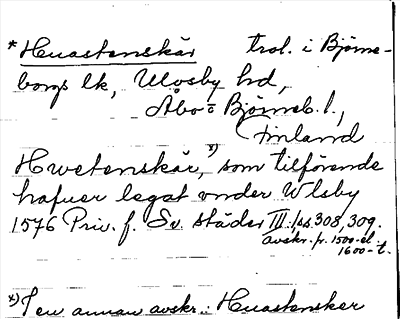 * Huastenskär trol. i Björne-
borgs lk, Ulvsby hd,
Åbo o Björneb. l.,
Finland
Hwetenskär, x) som tilförende
hafuer legat vnder Wlsby
1576 Priv. f. Sv. städer III: ss. 308, 309.
avskr. fr. 1500- el.
1600-t.
x) I en annan avskr.: Huastensker